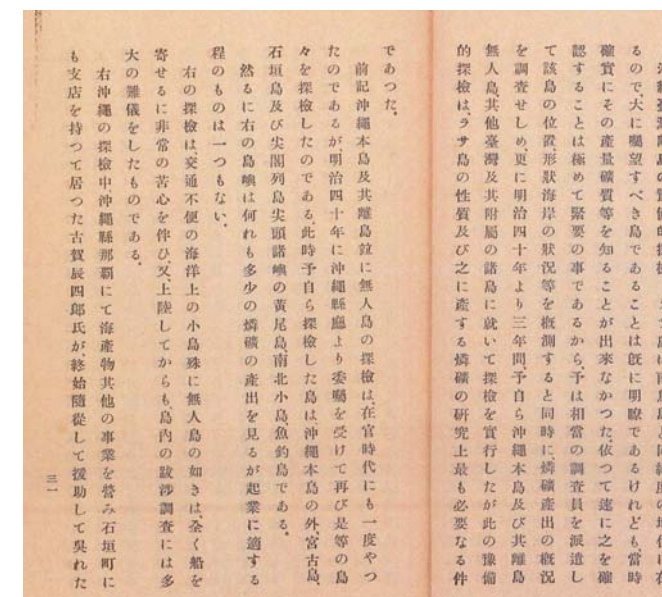 るので、大に囑望すべき島であることは旣に明瞭であるけれども、當時
確實にその產量礦質等を知ることが出來なかつた。依つて速に之を確
認することは極めて緊要の事であるから、予は相當の調查員を派遣し
て該島の位置、形狀海岸の狀況等を槪測すると同時に、燐礦產出の槪況
を調查せしめ、更に明治四十年より三年間、予自ら沖繩本島及び其離島
無人島、其他臺灣及其附屬の諸島に就いて探檢を實行したが此の豫備
的探檢は、ラサ島の性質及び之に產する燐礦の硏究上最も必要なる件
であつた。
前記沖繩本島及其離島竝に無人島の探檢は、在官時代にも一度やつ
たのであるが、明治四十年に沖繩縣廳より委囑を受けて再び是等の島
々を探檢したのである。此時予自ら探檢した島は、沖繩本島の外、宮古島、
石垣島及び尖閣列島尖頭諸嶼の黃尾島、南北小島、魚釣島である。
然るに右の島嶼は何れも多少の燐礦の產出を見るが起業に適する
程のものは一つもない。
右の探檢は、交通不便の海洋上の小島殊に無人島の如きは、全く船を
寄せるに非常の苦心を伴ひ、又上陸してからも、島內の跋涉調查には多
大の難儀をしたものである。
右沖繩の探檢中、沖繩縣那覇にて海產物其他の事業を營み石垣町に
も支店を持つて居つた古賀辰四郎氏が、終始隨從して援助して吳れた
三一